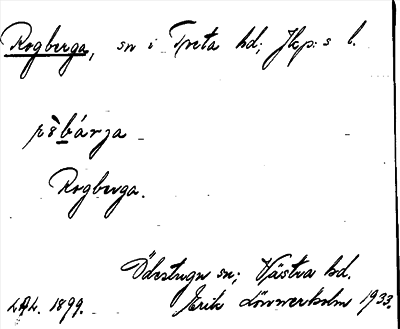 Rogberga, sn i Tveta hd; Jkp:s l.
Rogberga.
Ödestugu sn; Västra hd.
1899. Erik Lönnerholm 1933.